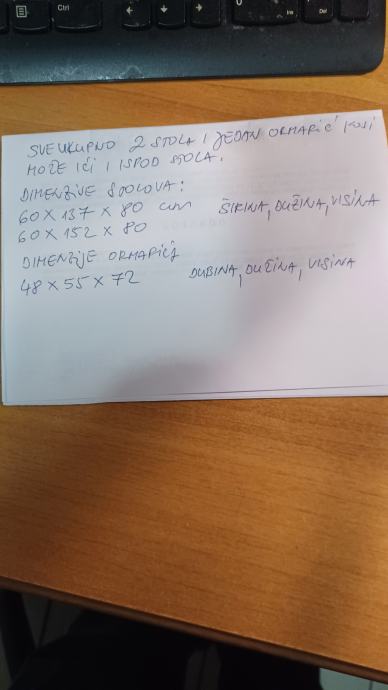 Ctrl
Ins
Del
SVEUKUPNO 2 STOLA I JEDAN ORMARIĆ KOSI
MOŽE IĆI I ISPOD STOLA.
DIMENZIJE STOLOVA:
60 X 137 X 80 cm ŠIRINA, DUŽINA, VISINA
60 X 152 X 80
DIMENZIJE ORMARIĆA
48 X 55 X 72 DUBINA, DUŽINA, VISINA